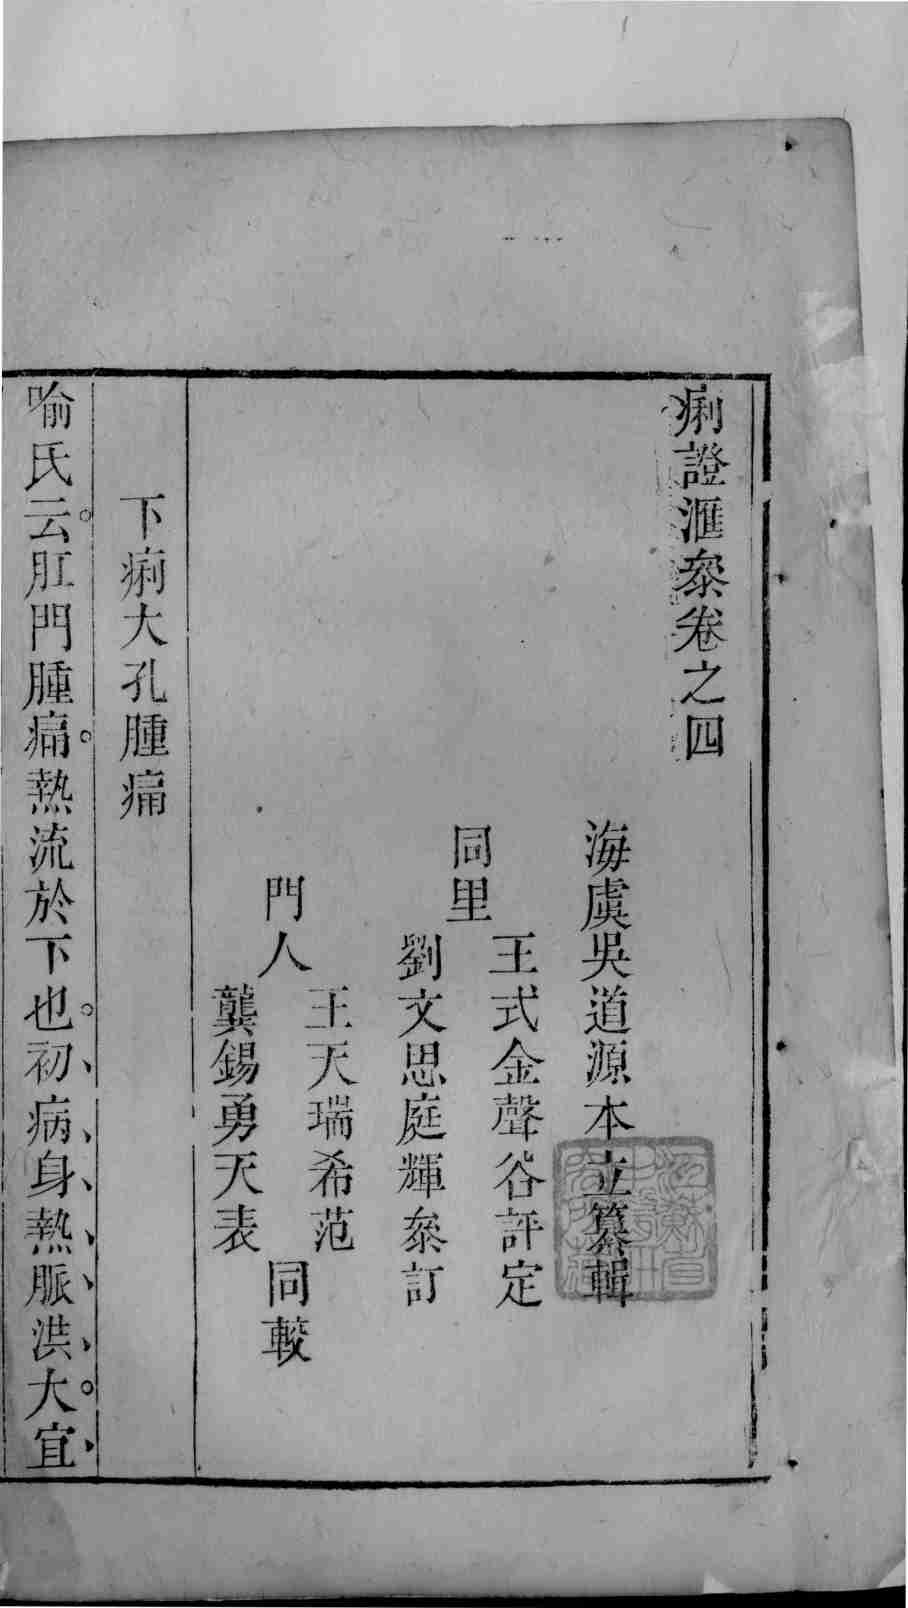 痢證滙叅卷之四
海虞吳道源本立纂輯
同里
王式金聲谷評定
劉文思庭輝叅訂
門人
王天瑞希范
龔錫勇天表
同較
下痢大孔腫痛
喻氏云肛門腫痛熱流於下也初病身熱脈洪大宜